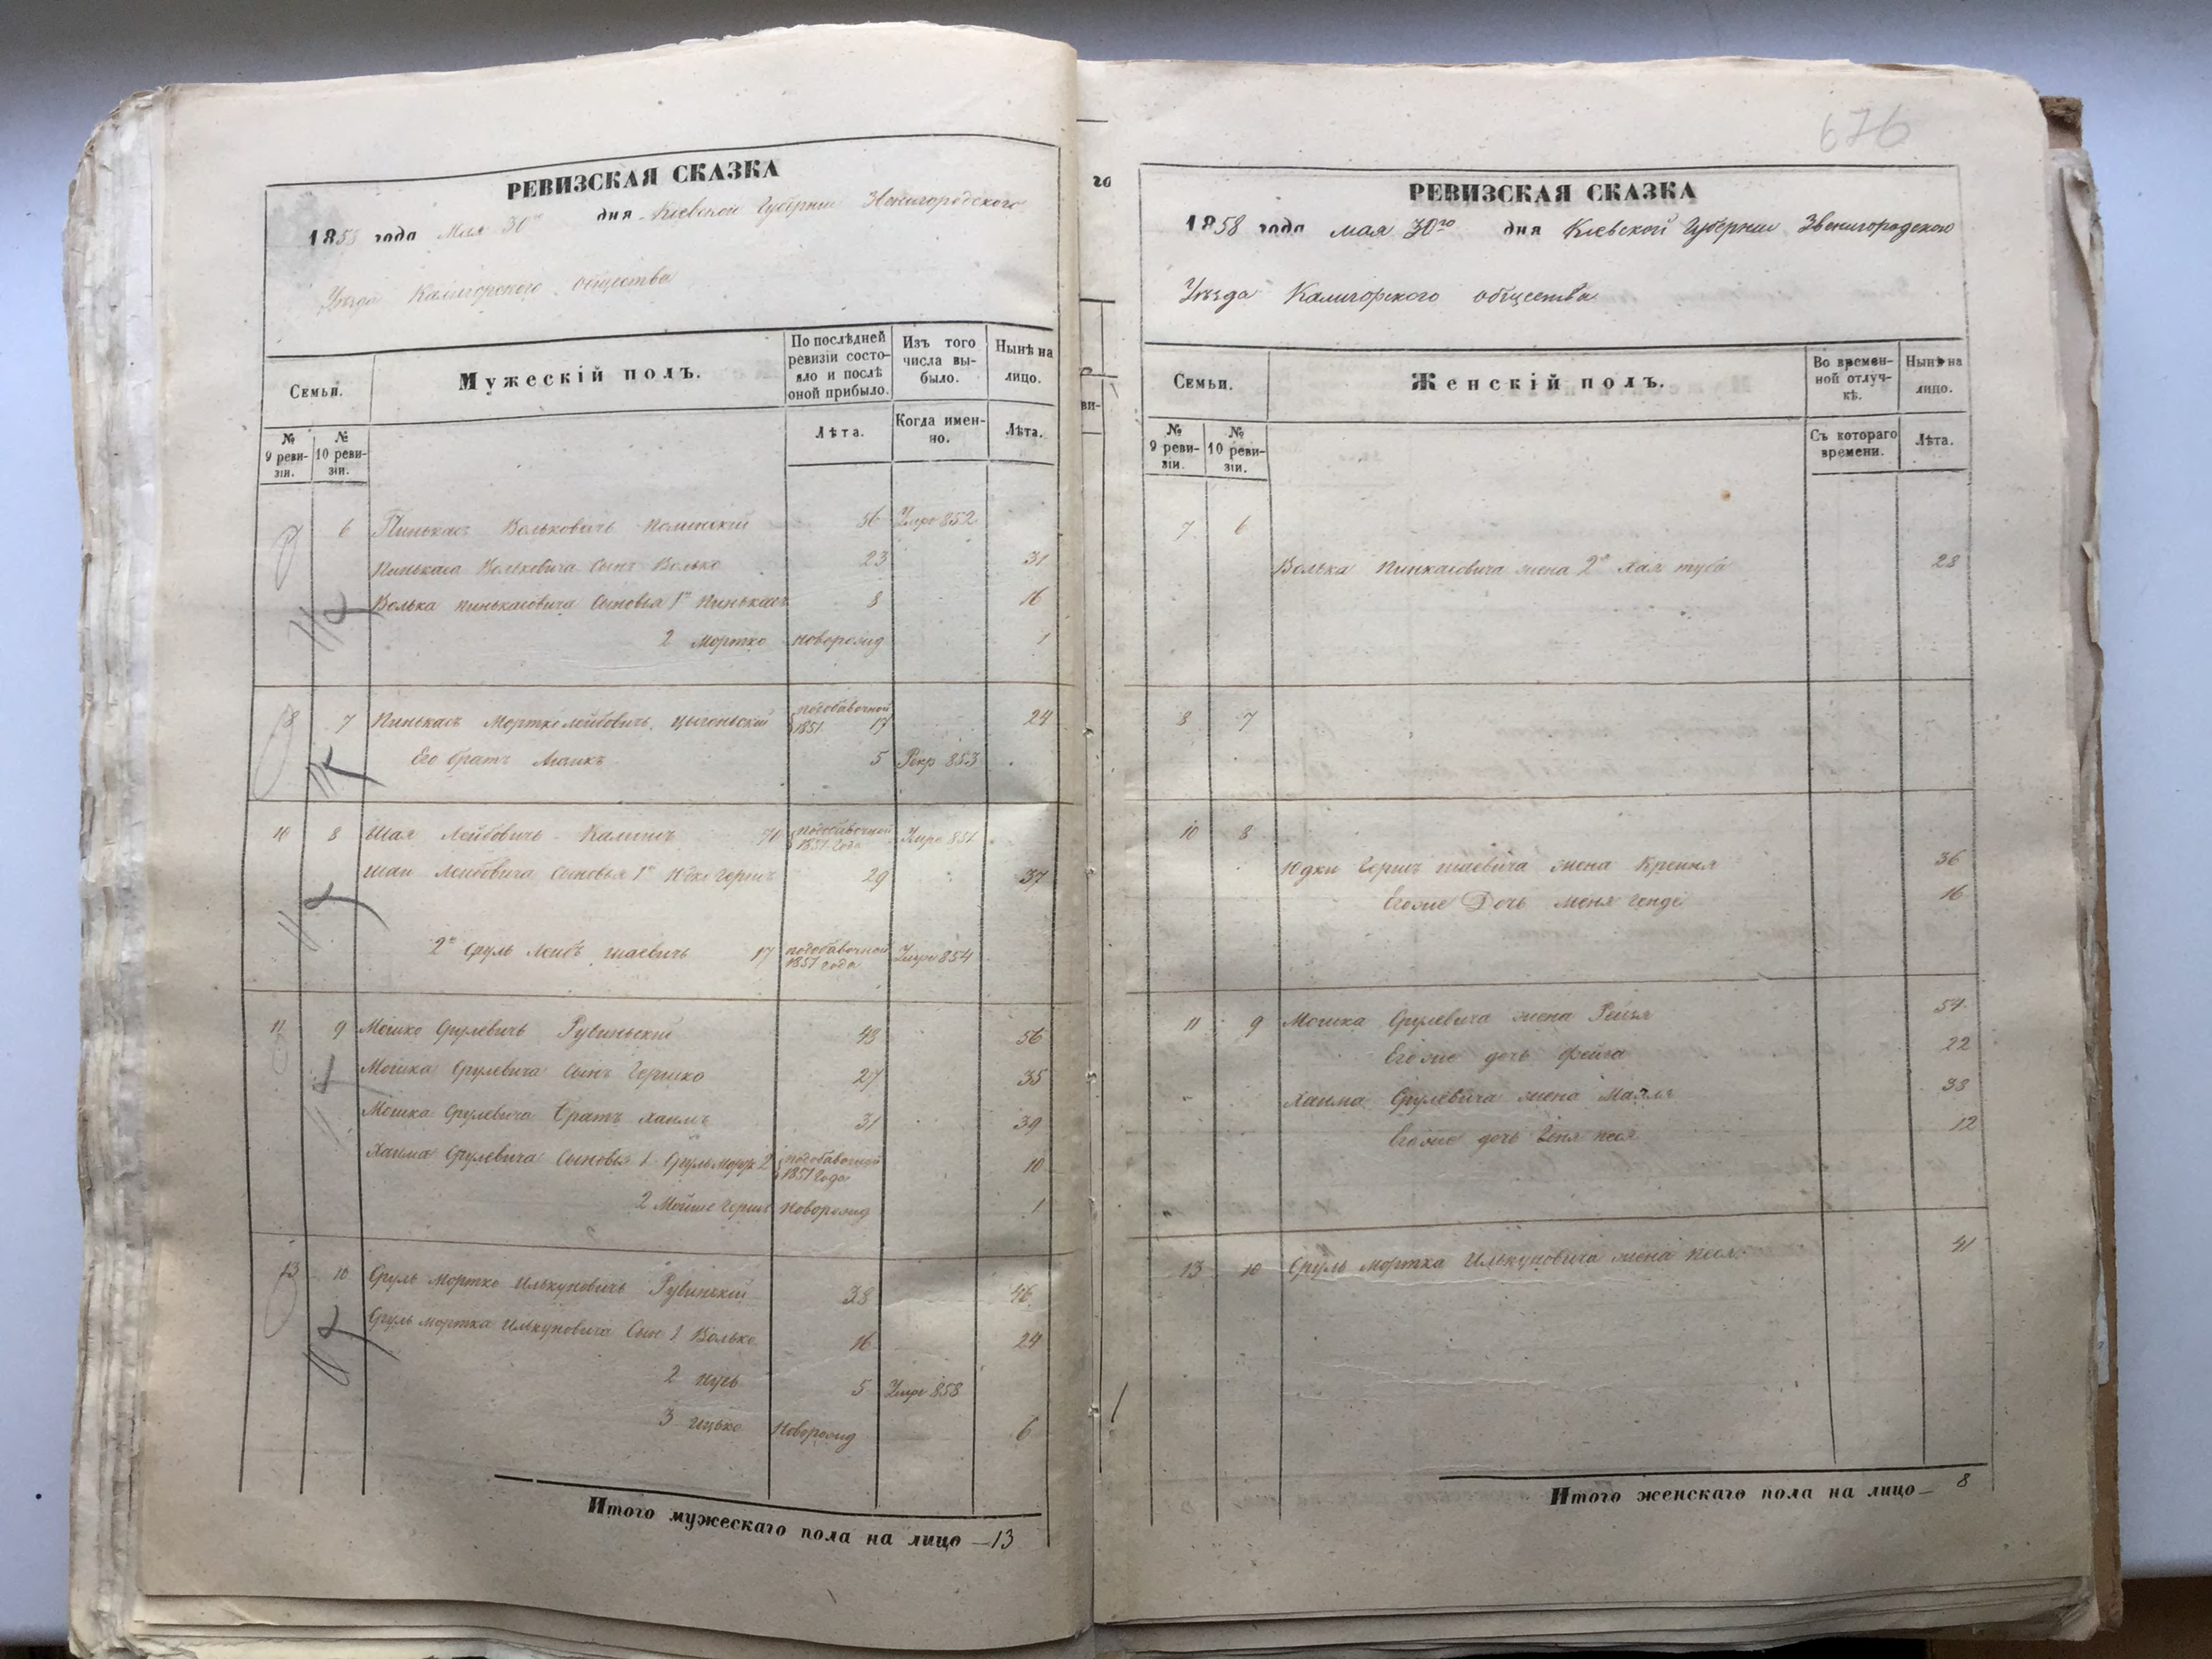 РЕВИЗСКАЯ СКАЗКА
1858 года Мая 30го дня Кіевской Губерніи Звенигородского
Уѣзда Калигорского общества
Семьи.
Мужескій полъ.
По послѣдней ревизіи состояло и послѣ оной прибыло.
Изъ того числа выбыло.
Нынѣ на лицо.
№ 9 ревизіи.
№ 10 ревизіи.
Лѣта.
Когда именно.
Лѣта.
7 6 Пинькасъ Вольковичь 56 Умре 852
Пинькаса Вольковича Сынъ Волько 23 31
Волька Пинькасовича Сыновья 1й Пинькасъ 8 16
2 Мортко новорожд 1
8 7 Пинькасъ Мортко Лейбовичь подобавочной 1851 17 24
Его братъ Ицикъ 5 Рекр 853
10 8 Шая Лейбовичь 70 подобавочной 1851 года Умре 851
Шаи Лейбовича Сыновья 1й Юдко Гершъ 29 37
2й Сруль Лейбъ Шаевичь 17 подобавочной 1851 года Умре 854
11 9 Мошко Срулевичь Рубинскій 48 56
Мошка Срулевича Сынъ Гершко 27 35
Мошка Срулевича братъ Хаимъ 31 39
Хаима Срулевича Сыновья 1 Сруль 2 подобавочной 1851 года 10
2 Мойше Гершъ Новорожд 1
13 10 Сруль Мортко Илькуновичь Рубинскій 38 46
Сруль Мортка Илькуновича Сын 1 Волько 16 24
2 5 Умре 858
3 Ицько Новорожд 6
Итого мужескаго пола на лицо — 13
676
РЕВИЗСКАЯ СКАЗКА
1858 года мая 30го дня Кіевской Губерніи Звенигородского
Уѣзда Калигорского общества
Семьи.
Женскій полъ.
Во временной отлучкѣ.
Нынѣ на лицо.
№ 9 ревизіи.
№ 10 ревизіи.
Съ котораго времени.
Лѣта.
7 6
Волька Пинкасовича жена 2я Хая 28
8 7
10 8
Юдки Гершъ Шаевича жена Крейня 36
Егоже Дочь 16
11 9 Мошка Срулевича жена Рейзя 54
Егоже дочь Фейга 22
Хаима Срулевича жена 38
Егоже дочь Геня песя 12
13 10 Сруль Мортка Илькуновича жена песя 41
Итого женскаго пола на лицо — 8